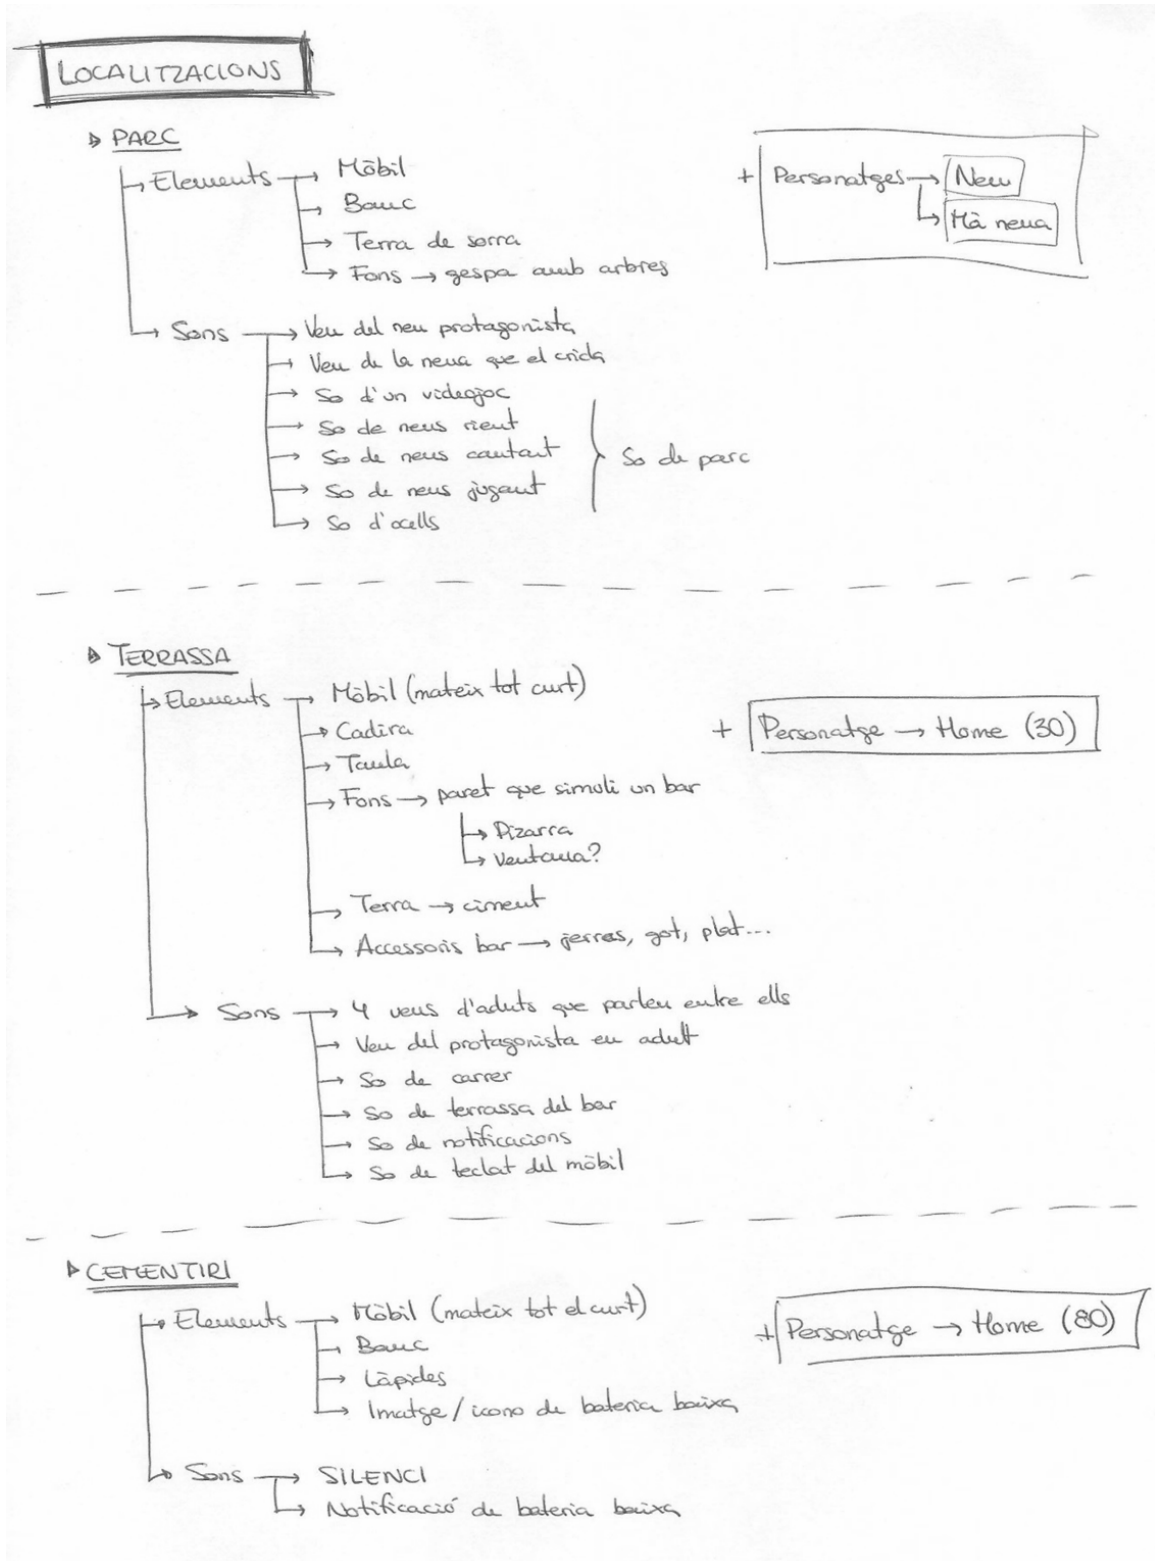 LOCALITZACIONS
PARC
Elements → Mòbil
→ Banc
→ Terra de sorra
→ Fons → gespa amb arbres
+ Personatges → Nen
→ Mà nena
Sons → Veu del nen protagonista
→ Veu de la nena que el crida
→ So d'un videojoc
→ So de nens rient
→ So de nens cantant
→ So de nens jugant
→ So d'ocells
So de parc
TERRASSA
Elements → Mòbil (mateix tot curt)
→ Cadira
→ Taula
→ Fons → paret que simuli un bar
→ Pizarra
→ Ventana?
→ Terra → ciment
→ Accessoris bar → jerres, got, plat...
+ Personatge → Home (30)
Sons → 4 veus d'aduts que parlen entre ells
→ Veu del protagonista en adult
→ So de carrer
→ So de terrassa del bar
→ So de notificacions
→ So de teclat del mòbil
CEMENTIRI
Elements → Mòbil (mateix tot el curt)
→ Banc
→ Làpides
→ Imatge / icono de bateria baixa
+ Personatge → Home (80)
Sons → SILENCI
→ Notificació de bateria baixa